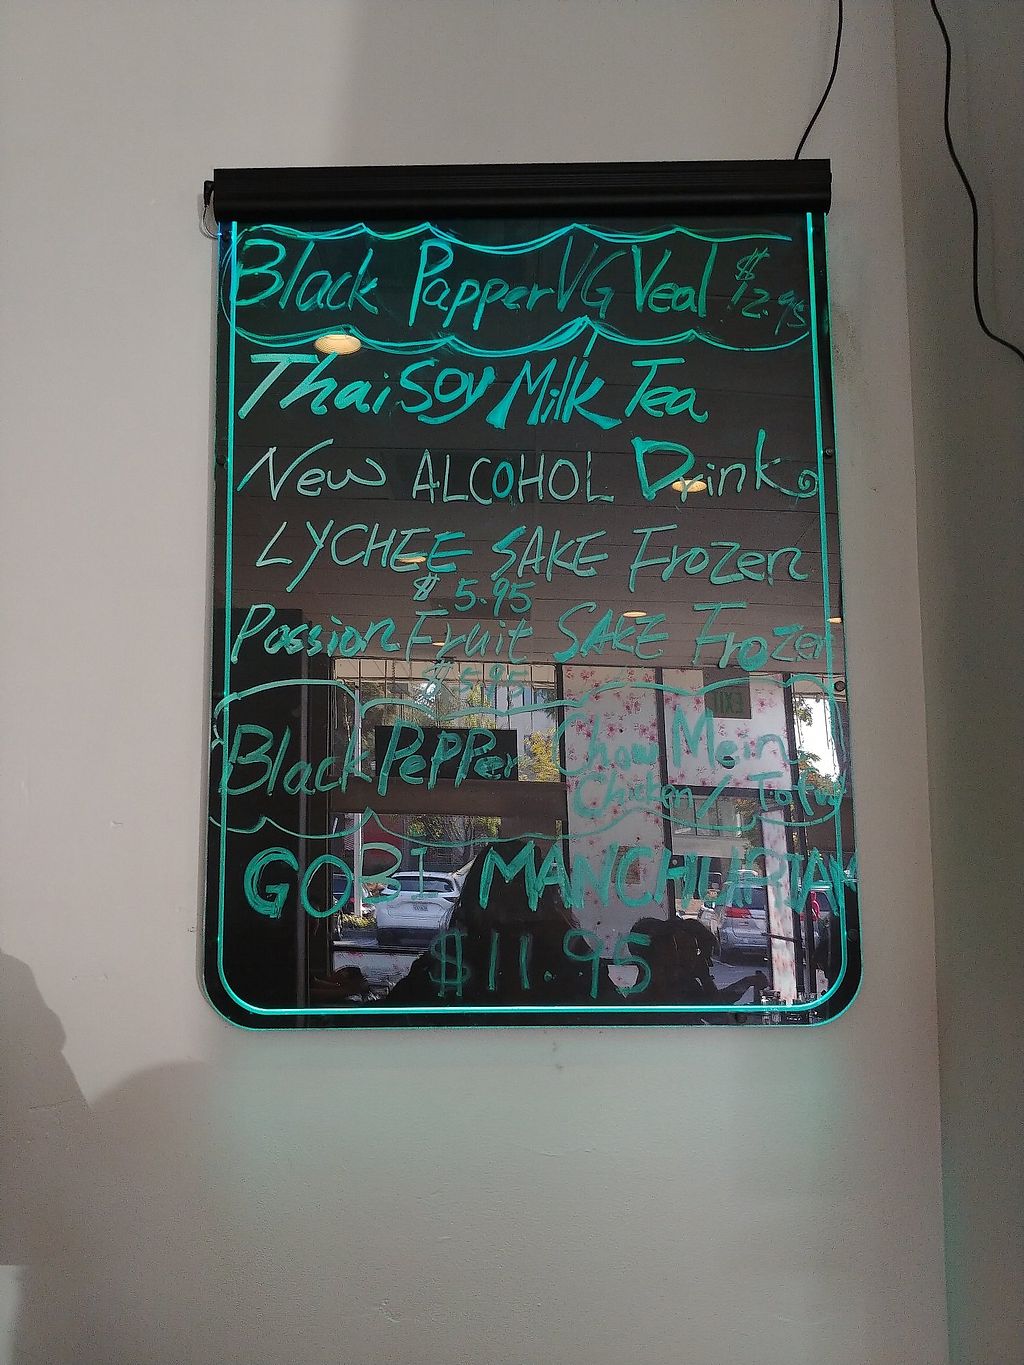 Black Papper VG Veal $12.95
Thai Soy Milk Tea
New ALCOHOL Drink
LYCHEE SAKE Frozen
$ 5.95
Passion Fruit SAKE Frozen
$ 5.95
Black PePPer Chow Mein
Chicken / Tofu
GOBI MANCHURIAN
$11.95